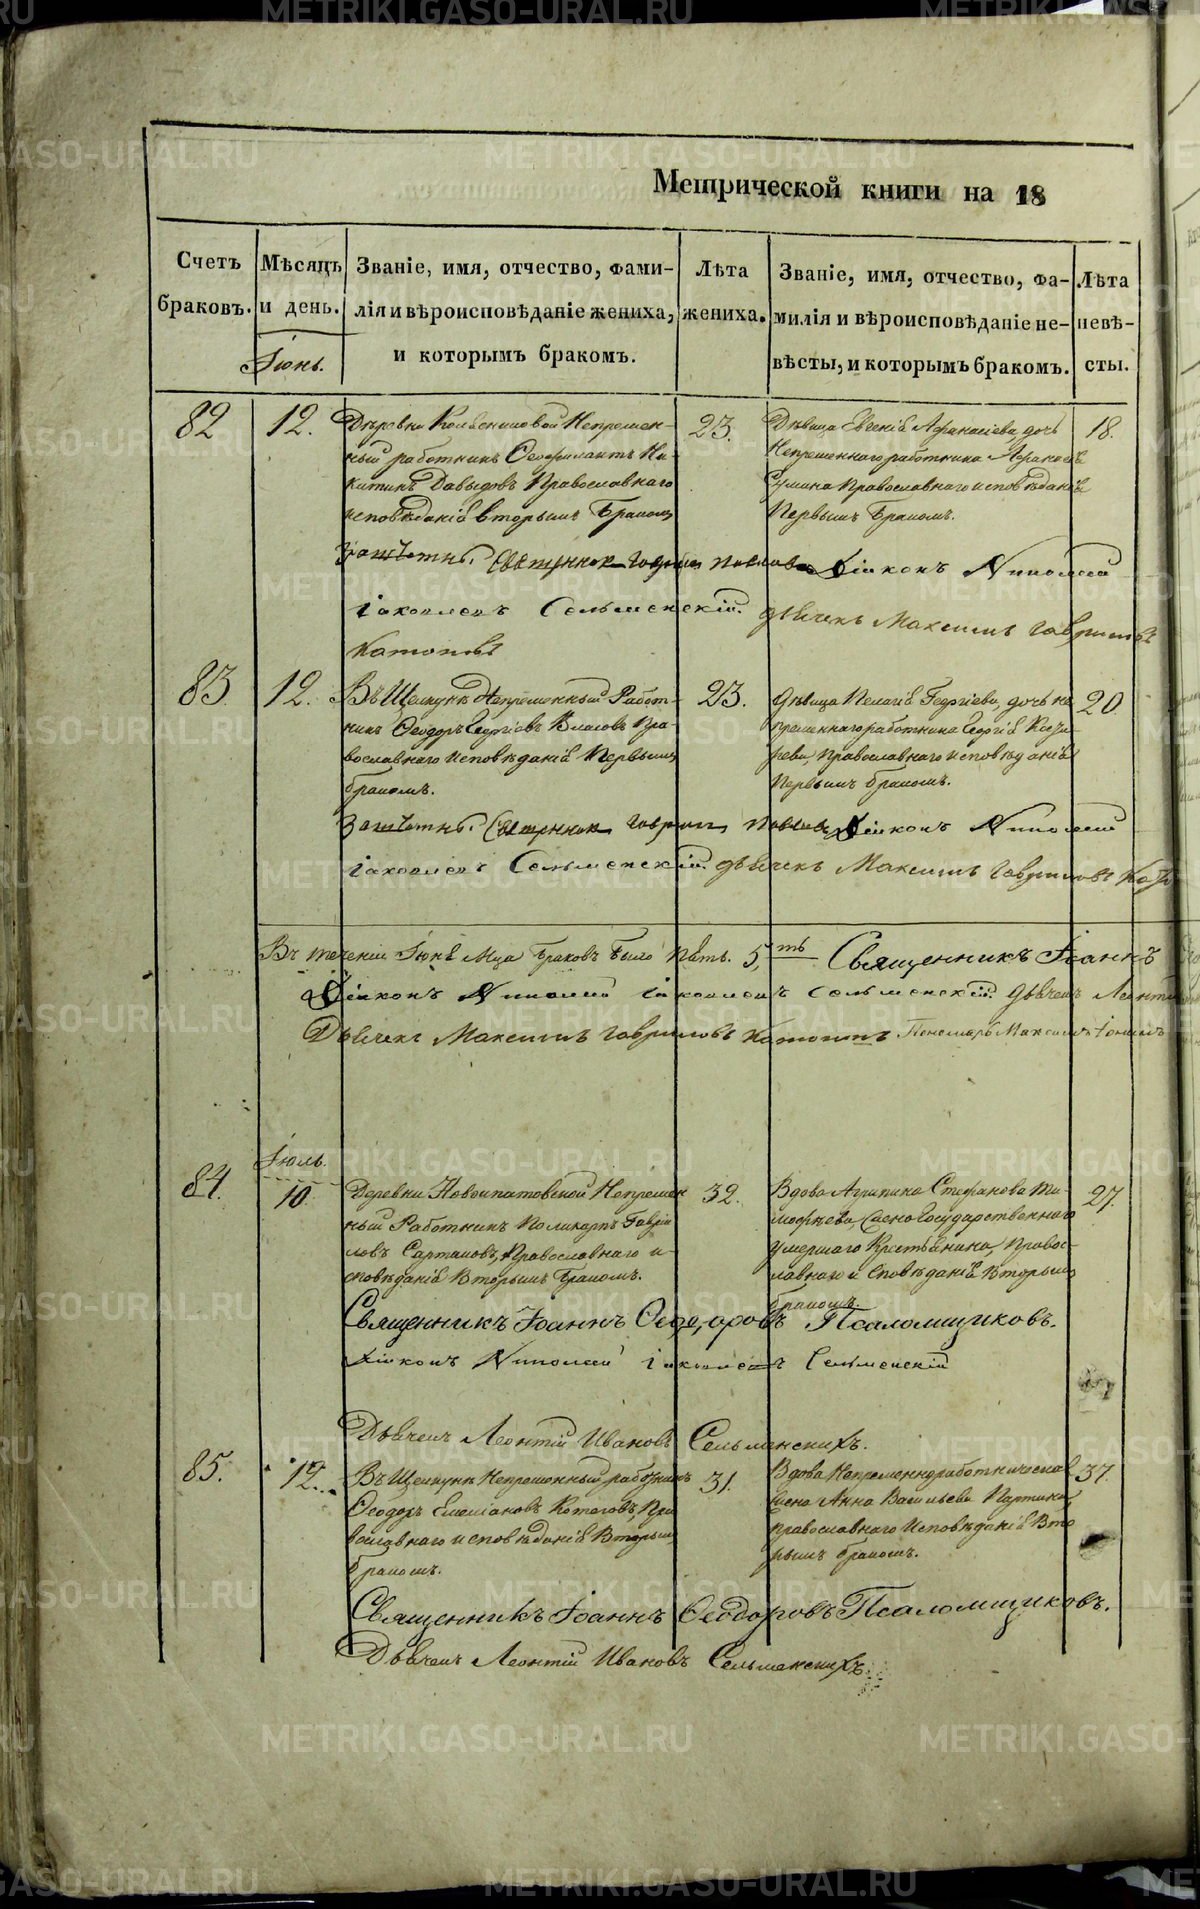 Метрической книги на 18
Счетъ браковъ.
Мѣсяцъ и день.
Званіе, имя, отчество, фами-
лія и вѣроисповѣданіе жениха,
и которымъ бракомъ.
Лѣта жениха.
Званіе, имя, отчество, фа-
милія и вѣроисповѣданіе не-
вѣсты, и которымъ бракомъ.
Лѣта невѣ-
сты.
Іюнь.
82
12.
Деревни Непремен-
ный работникъ Ѳеофилактъ Ни-
китинъ Давыдовъ Православнаго
исповѣданія вторымъ бракомъ
23.
Дѣвица Евгенія Афанасіева, дочь
Непременнаго работника
Православнаго исповѣданія
Первымъ бракомъ.
18.
Діаконъ Николай
Іаковлевъ Сельменскій. дьячекъ Максимъ Гавриловъ
83
12.
Въ Щелкунѣ Непременный Работ-
никъ Ѳеодоръ Георгіевъ Власовъ Пра-
вославнаго исповѣданія Первымъ
бракомъ.
23.
Дѣвица Пелагія Георгіева, дочь не
пременнаго работника Георгія
Православнаго исповѣданія
Первымъ бракомъ.
20.
Діаконъ Николай
Іаковлевъ Сельменскій. дьячекъ Максимъ Гавриловъ
Въ теченіи Іюня Мца браковъ было пять. 5,ть Священникъ Іоаннъ
Діаконъ Николай Іаковлевъ Сельменскій. Дьячекъ
Дьячекъ Максимъ Гавриловъ Пономарь Максимъ
Іюль.
84.
10.
Деревни Новоипатовской Непремен
ный Работникъ Поликарпъ Гаврі
ловъ Православнаго и-
сповѣданія Вторымъ бракомъ.
32.
Вдова Агрипина Стефанова Ти-
мофѣева Государственнаго
умершаго Крестьянина, Правос-
лавнаго исповѣданія Вторымъ
бракомъ.
27.
Священникъ Іоаннъ Ѳеодоровъ Псаломщиковъ.
Діаконъ Николай Іаковлевъ Сельменскій
Дьячекъ Леонтій Ивановъ Сельменскихъ.
85.
12.
Въ Щелкунѣ Непременный работникъ
Ѳеодоръ Емеліановъ Котеговъ, Пра
вославнаго исповѣданія Вторымъ
бракомъ.
31.
Вдова
жена Анна Васильева
православнаго Исповѣданія Вто
рымъ бракомъ.
37.
Священникъ Іоаннъ Ѳеодоровъ Псаломщиковъ.
Дьячекъ Леонтій Ивановъ Сельменскихъ.
METRIKI.GASO-URAL.RU